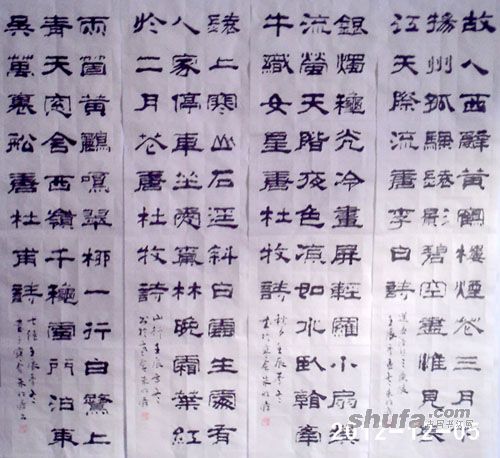 故人西辭黃鶴樓煙花三月下
揚州孤帆遠影碧空盡唯見長
江天際流唐李白詩
銀燭龝光冷畫屏輕羅小扇撲
流螢天階夜色涼如水臥看牽
牛織女星唐杜牧詩
遠上寒山石徑斜白雲生處有
人家停車坐愛楓林晚霜葉紅
於二月花唐杜牧詩
兩箇黃鸝鳴翠柳一行白鷺上
青天窗含西嶺千龝雪門泊東
吳萬裏船唐杜甫詩
shufa.com
2012-12-05